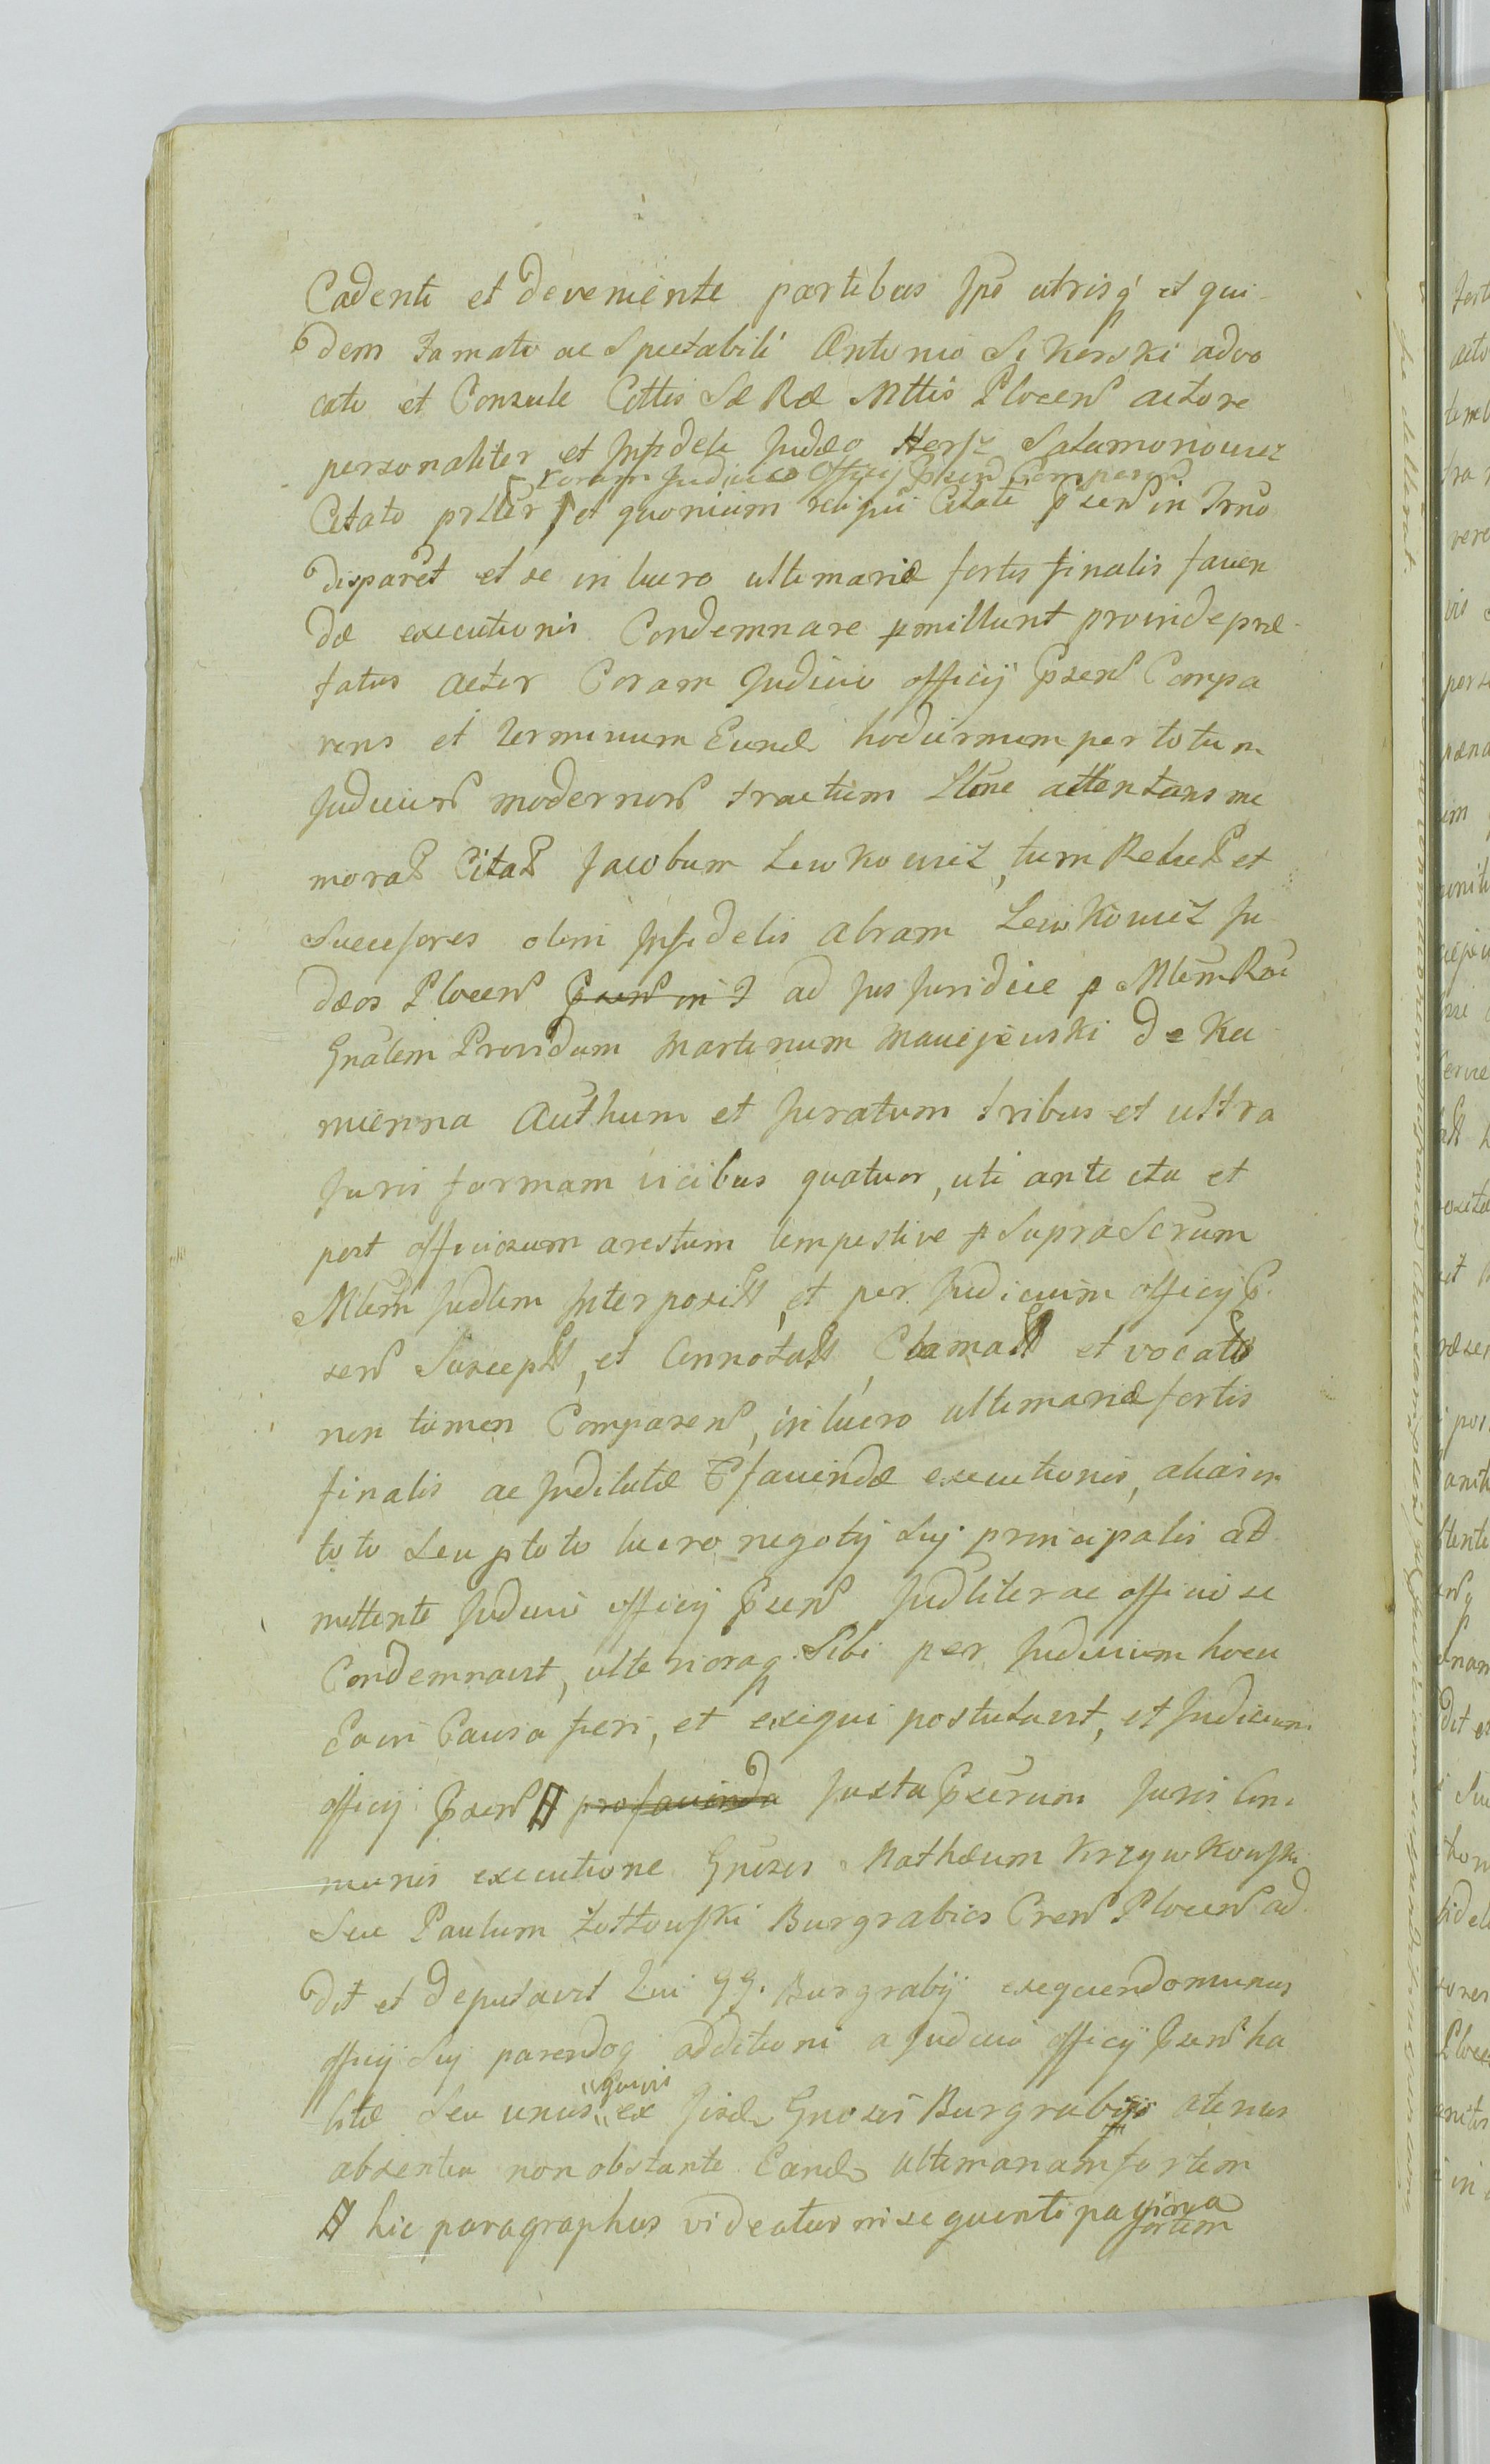 Cadenti et deveniente partibus ipō utrisq̨ et qui-
dem Famato ac Spectabili Antonio Sikorski advo
cato et Consule Cttis Sæ Ræ Mttis Plocen actore
personaliter et Infideli Judæo Hersz Salamonowicz
coram Judicio Officij Pñsen Comparen
Citato prlter et quonium reliqui Citati pñsen in Trno
disparēt et se in lucro ultimariæ fortis finalis faven
dæ executionis Condemnare pmittunt proinde præ-
fatus actor Coram Judicio officij Pñsen Compa
rens et terminum Eund hodiernum per totum
Judicior modernor tractum Lttme attentans me
morat Citat Jacobum Lewkowicz, tum Relict et
Successores olim Infidelis Abram Lewkowicz Ju
dæos Plocen ad Jus Juridice p Mlēm Rni
Gnālem Providum Martinum Maciejewski de Ka
mienna Authum et Juratum tribus et ultra
Juris formam vicibus quatuor, uti ante ita et
post officiosum arestum tempestive p Supra Scrūm
Mlēm Judlem Interposit, et per Judicium officij P
sen Suscept, et Connotat, Clamat et vocato
non tamen Comparen, in lucro ultimariæ fortis
finalis ac Indilatæ favendæ executionis, alias in
toto seu p toto lucro negotij sui principalis ad
mittente Judicio officij Pñsen Judliter ac officiose
Condemnavit, ulterioraq̨ Sibi per Judicium hocce
Ea in Causa fieri, et exequi postulavit, et Judicium
officij Pñsen # pro favenda Juxta Pñscrūm Juris Com
munis executione Gnosos Mathæum Krzywkowski
Seu Paulum Żółtowski Burgrabios Cren Plocen ad
dit et Deputavit Qui GG. Burgrabij exequendo munus
officij sui parendoq̨ additioni a Judicio officij Pñsen ha
bitæ Seu unus quivis ex iisd Gnosis Burgrabijs alterius
absentia non obstante Eand ultimariam fortem
# hic paragraphus videatur in sequenti pagina
fortem